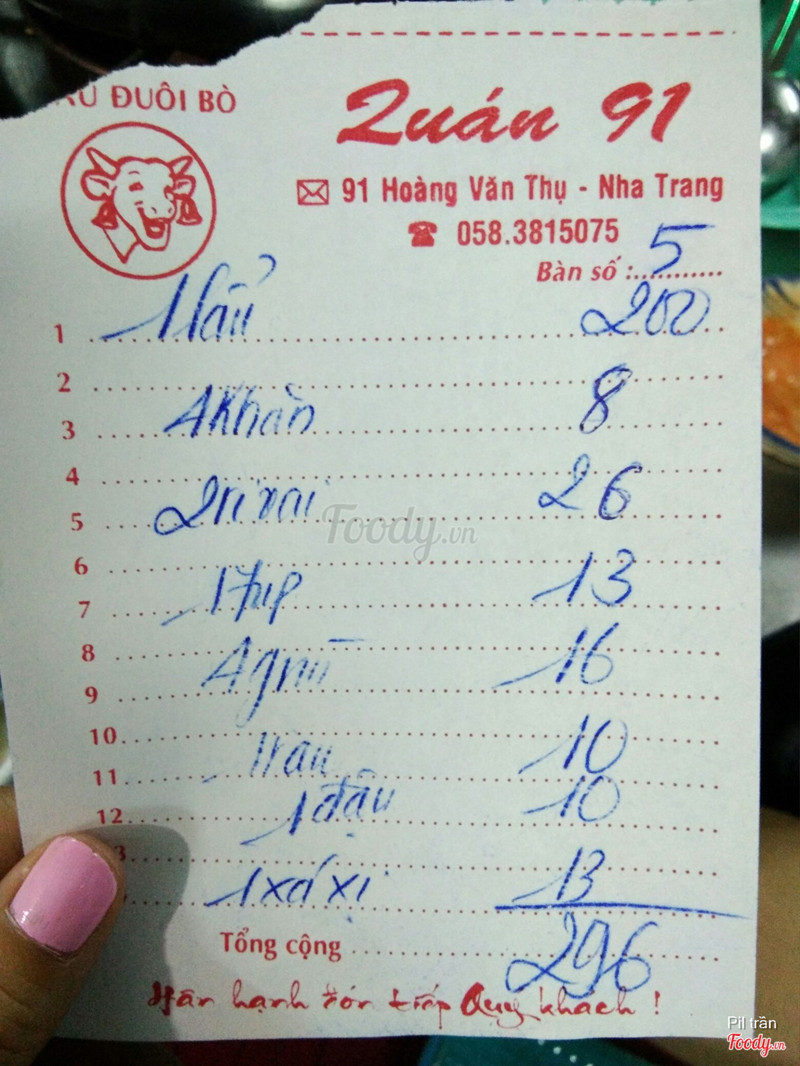 ẨU ĐUÔI BÒ
Quán 91
91 Hoàng Văn Thụ - Nha Trang
058.3815075
Bàn số : 5
1 1 lẩu 200
2
3 4 Khăn 8
4
5 26
6
7 1 7up 13
8
9 16
10
11 1 rau 10
12 1 đậu 10
3
1 xá xị 13
Tổng cộng 296
Hân hạnh đón tiếp Quý khách !
Foody.vn
Pil trần
Foody.vn